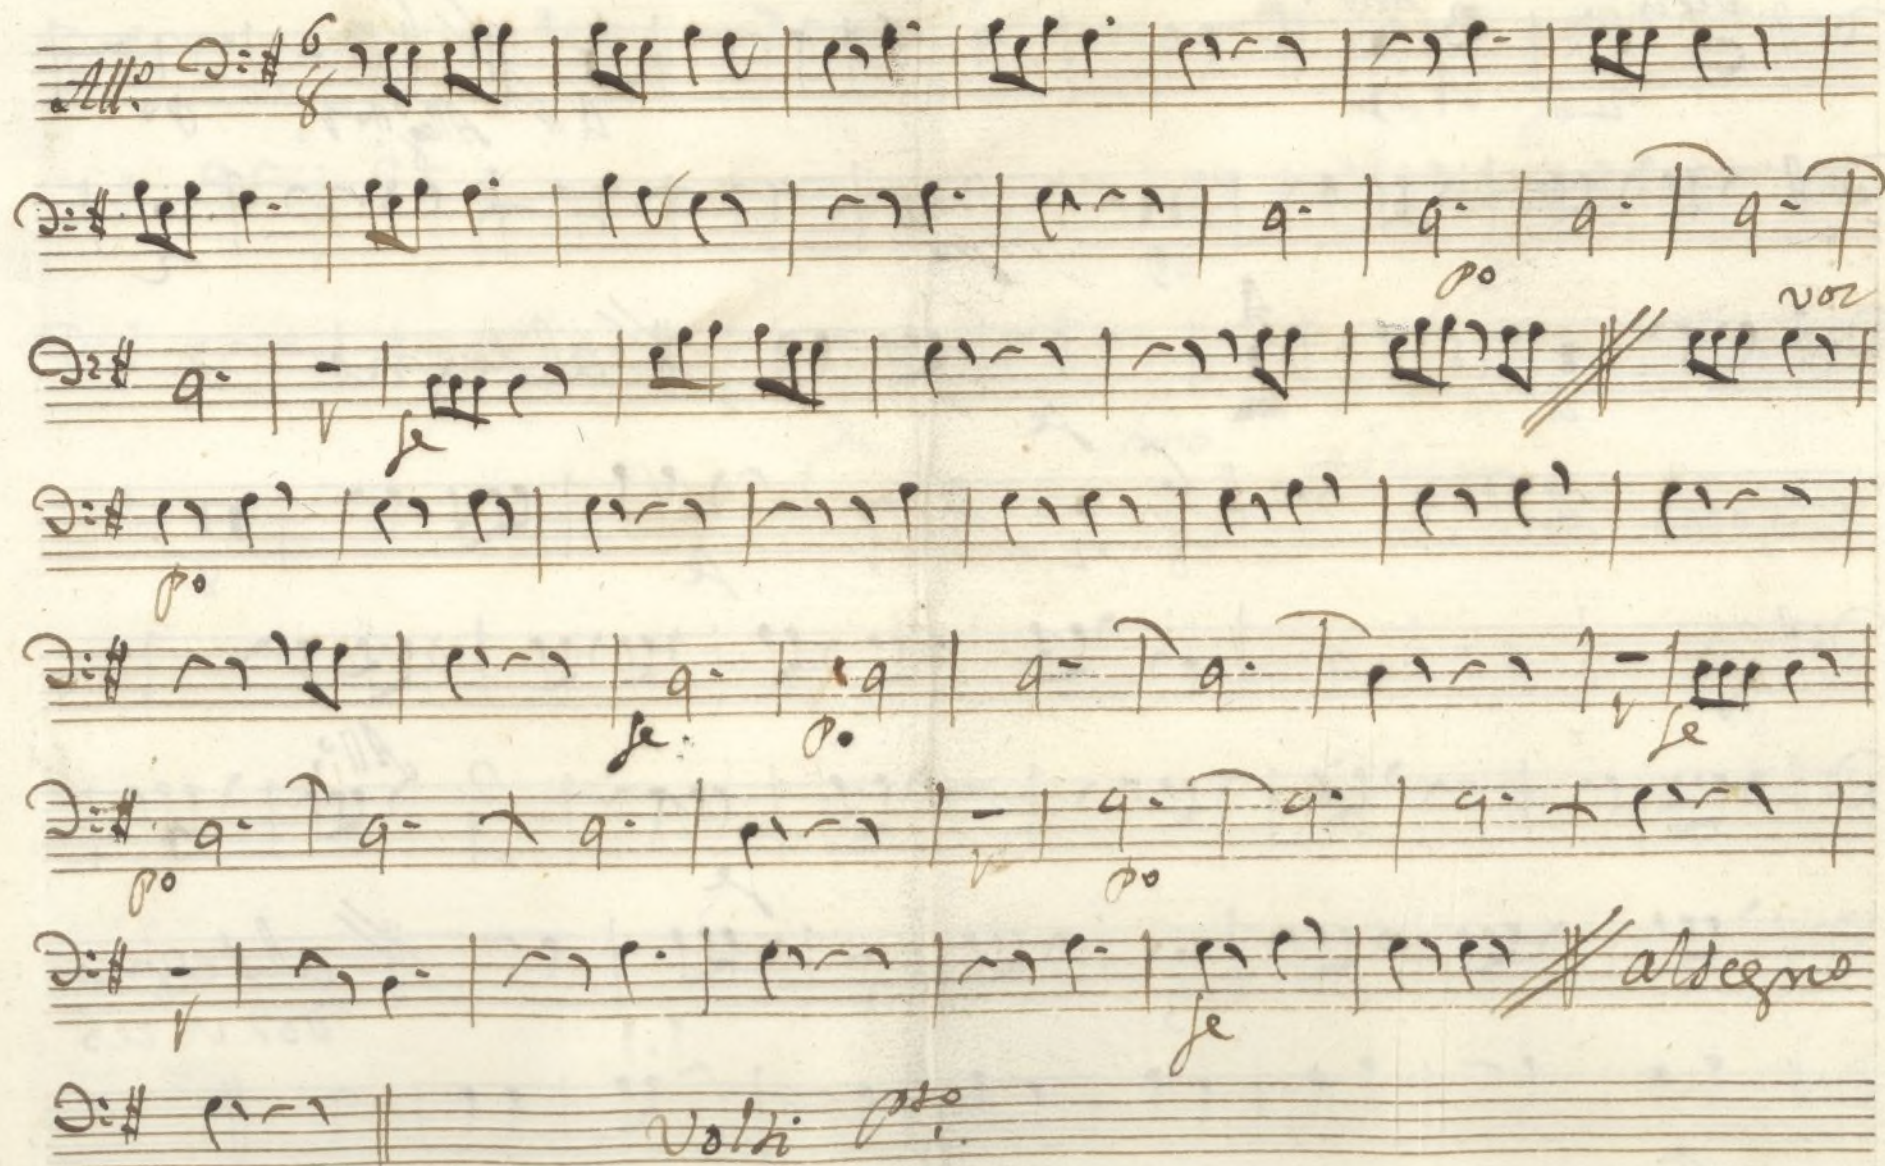 All.o 6 8
po
voz
fe
po
fe. p. fe
po po
fe al segno
Volti pto